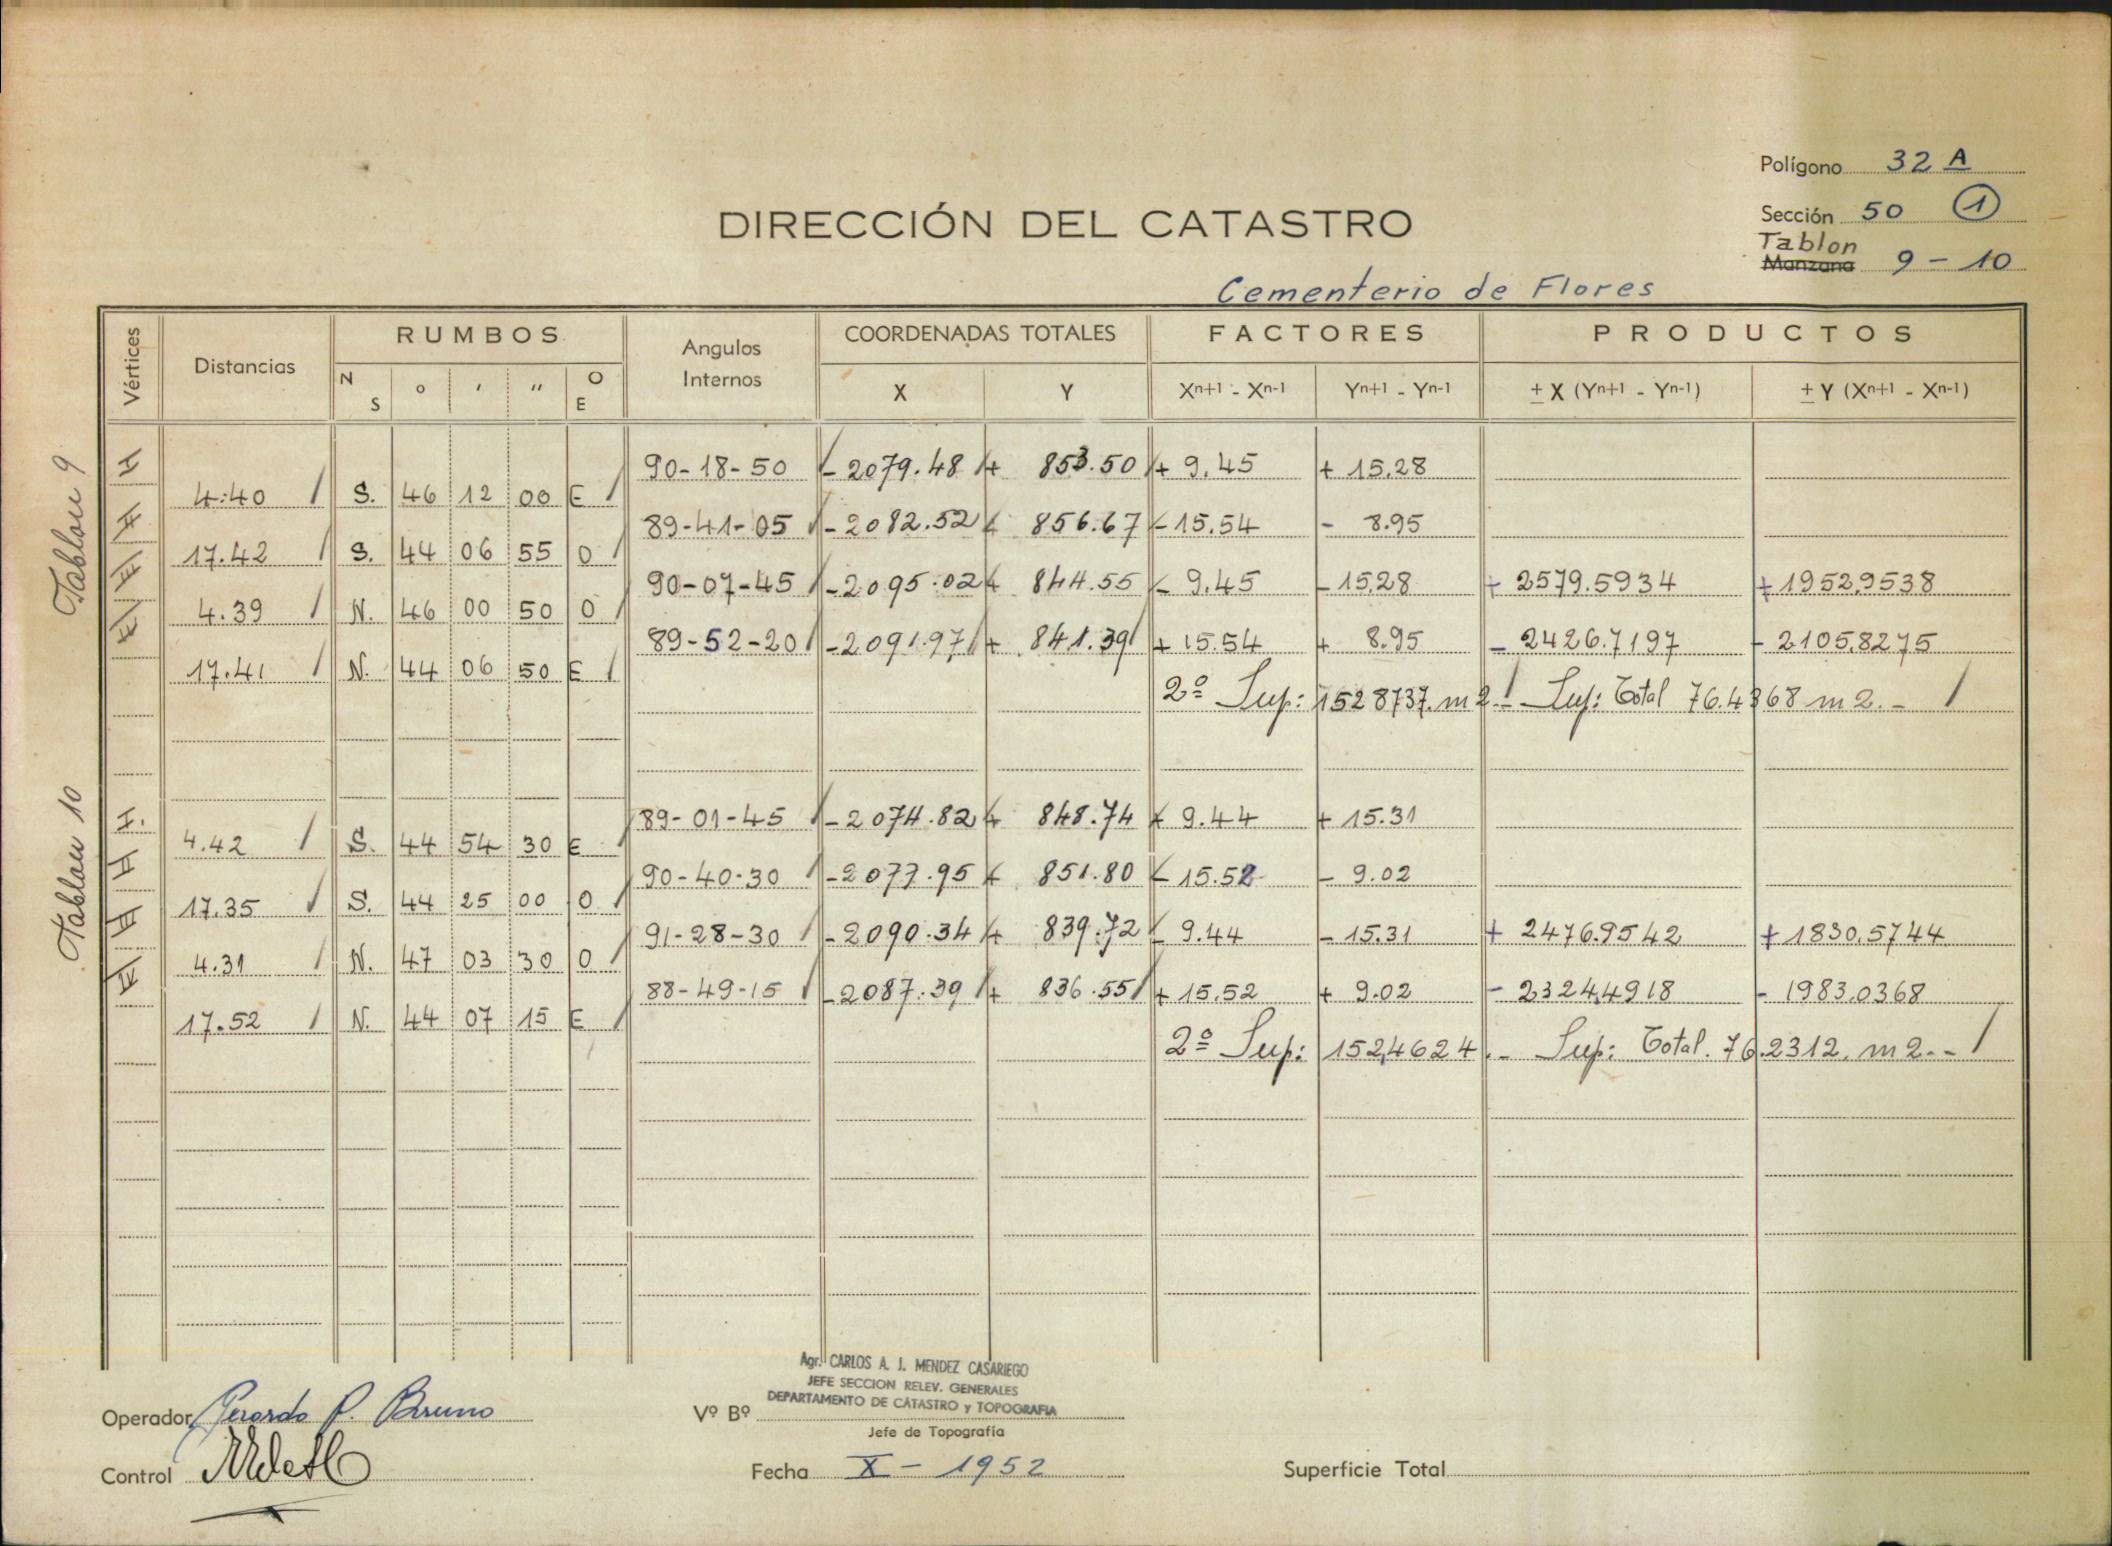 Polígono 32 A
Sección 50 1
Tablon
Manzana 9 - 10
DIRECCIÓN DEL CATASTRO
Cementerio de Flores
Vértices Distancias RUMBOS Angulos Internos COORDENADAS TOTALES FACTORES PRODUCTOS
N S ° ' " O E X Y Xn+1 - Xn-1 Yn+1 - Yn-1 ± X (Yn+1 - Yn-1) ± Y (Xn+1 - Xn-1)
Tablon 9
90-18-50 - 2079.48 + 853.50 + 9.45 + 15.28
4.40 S. 46 12 00 E
89-41-05 - 2082.52 + 856.67 - 15.54 - 8.95
17.42 S. 44 06 55 O
90-07-45 - 2095.02 + 844.55 - 9.45 - 15.28 + 2579.5934 + 1952.9538
4.39 N. 46 00 50 O
89-52-20 - 2091.97 + 841.39 + 15.54 + 8.95 - 2426.7197 - 2105.8275
17.41 N. 44 06 50 E
2º Sup: 152.8737. m2.- Sup: Total 76.4368 m2.-
Tablon 10
89-01-45 - 2074.82 + 848.74 + 9.44 + 15.31
4.42 S. 44 54 30 E
90-40-30 - 2077.95 + 851.80 - 15.52 - 9.02
17.35 S. 44 25 00 O
91-28-30 - 2090.34 + 839.72 - 9.44 - 15.31 + 2476.9542 + 1830.5744
4.31 N. 47 03 30 O
88-49-15 - 2087.39 + 836.55 + 15.52 + 9.02 - 2324.4918 - 1983.0368
17.52 N. 44 07 15 E
2º Sup: 152,4624.- Sup: Total. 76.2312. m2.-
Agr. CARLOS A. J. MENDEZ CASARIEGO
JEFE SECCION RELEV. GENERALES
DEPARTAMENTO DE CATASTRO y TOPOGRAFIA
Operador Gerardo P. Bruno Vº Bº
Jefe de Topografía
Control Fecha X - 1952 Superficie Total